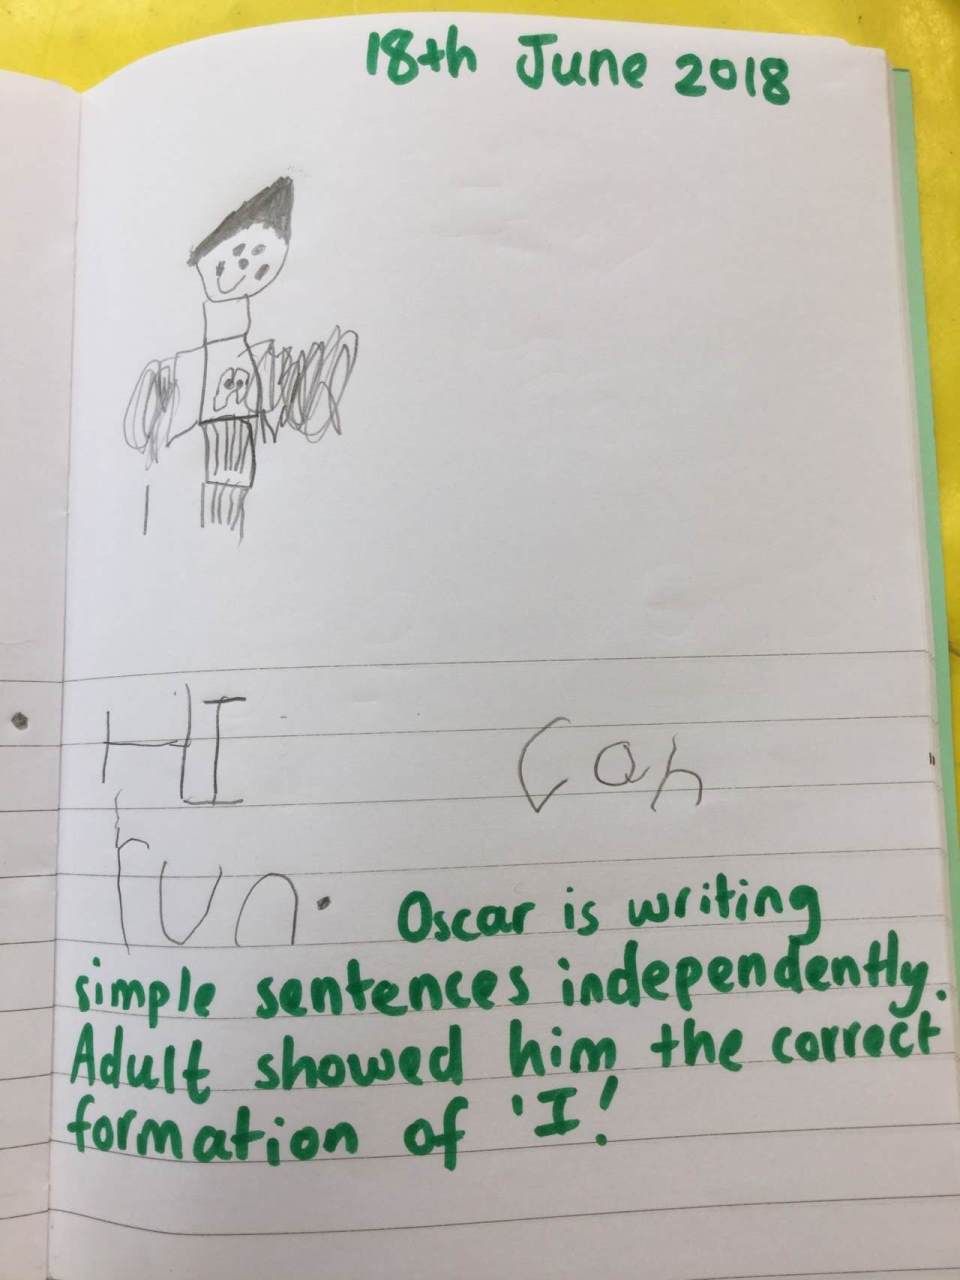 18th June 2018
HI can
run.
Oscar is writing
simple sentences independently.
Adult showed him the correct
formation of 'I!